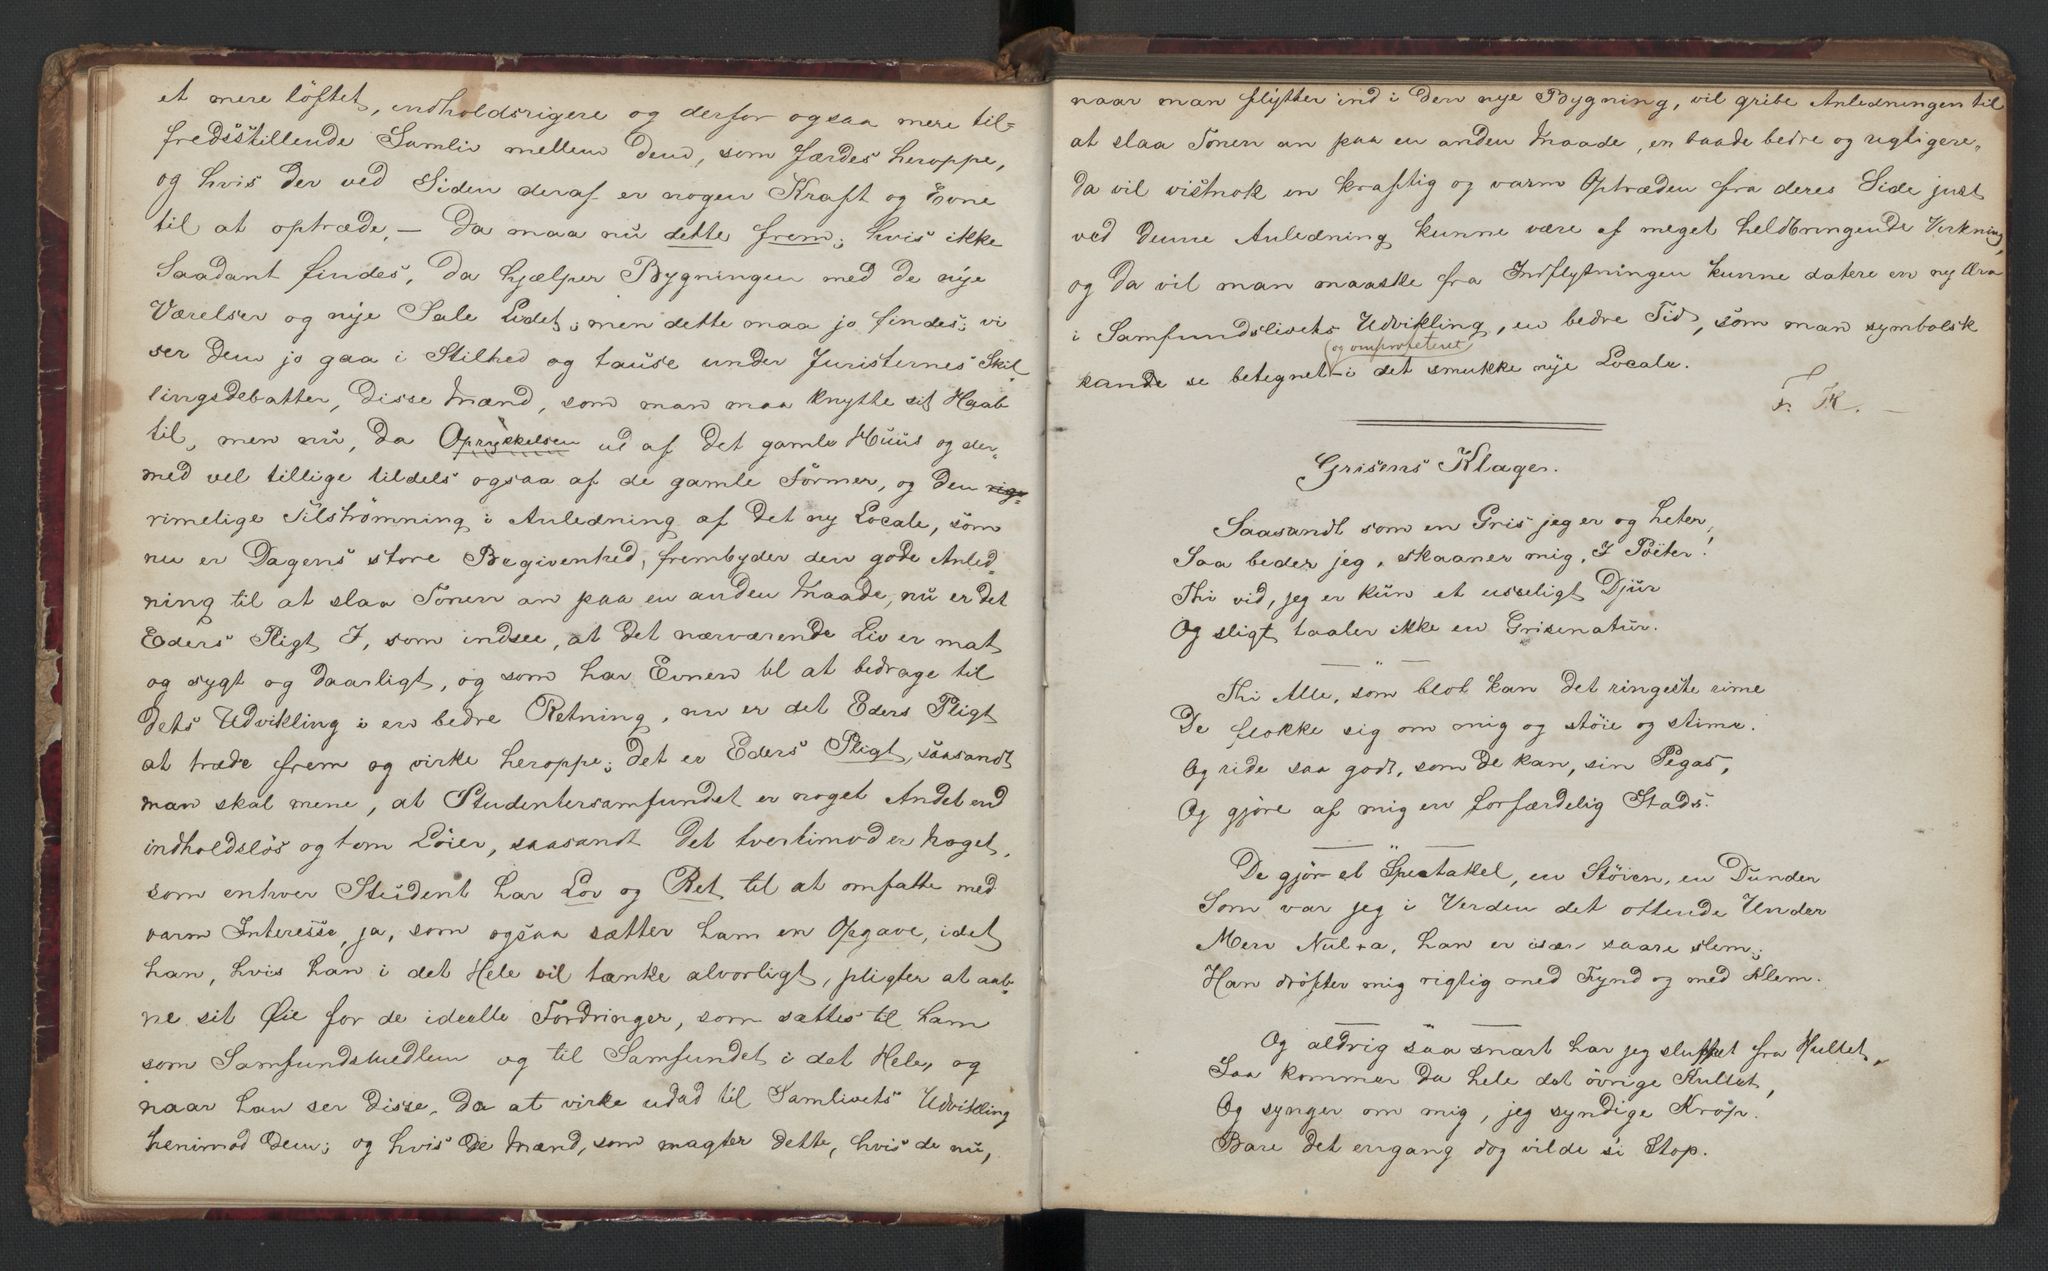 et mere løftet, indholdsrigere og derfor ogsaa mere til-
fredsstillende Samliv mellem dem, som færdes heroppe,
og hvis der ved Siden deraf er nogen Kraft og Evne
til at optræde, — da maa nu dette frem; hvis ikke
Saadant findes, da hjælper Bygningen med de nye
Værelser og nye Sale Lidet; men dette maa jo findes; vi
ser dem jo gaa i Stilhed og tause under Juristernes Skil-
lingsdebatter, disse Mænd, som man maa knytte sit Haab
til, men nu, da Oprykkelsen ud af det gamle Huus og der-
med vel tillige tildels ogsaa af de gamle Former, og den rig-
rimelige Tilstrømning i Anledning af det ny Locale, som
nu er Dagens store Begivenhed, frembyder den gode Anled-
ning til at slaa Tonen an paa en anden Maade, nu er det
Eders Pligt I, som indsee, at det nærværende Liv er mat
og sygt og daarligt, og som har Evnen til at bedrage til
dets Udvikling i en bedre Retning, nu er det Eders Pligt
at træde frem og virke heroppe; det er Eders Pligt, saasandt
man skal mene, at Studentersamfundet er noget Andet end
indholdsløs og tom Løier, saasandt det tvertimod er noget,
som enhver Student har Lov og Ret til at omfatte med
varm Interesse, ja, som ogsaa sætter ham en Opgave, idet
han, hvis han i det Hele vil tænke alvorligt, pligter at aab-
ne sit Øie for de ideelle Fordringer, som sættes til ham
som Samfundsmedlem og til Samfundet i det Hele, og
naar han ser disse, da at virke udad til Samlivets Udvikling
henimod dem; og hvis de Mænd, som magter dette, hvis de nu,
naar man flytter ind i den nye Bygning, vil gribe Anledningen til
at slaa Tonen an paa en anden Maade, en baade bedre og rigtigere,
da vil vistnok en kraftig og varm Optræden fra deres Side just
ved denne Anledning kunne være af meget heldbringende Virkning,
og da vil man maaske fra Indflytningen kunne datere en ny Æra
i Samfundslivets Udvikling, en bedre Tid, som man symbolsk
(og omproteret)
kunde se betegnet i det smukke nye Locale.
F. K. —
Grisens Klager.
Saasandt som en Gris jeg er og heter,
Saa beder jeg, skaaner mig, I Poëter!
Thi vid, jeg er kun et usseligt Djur
Og sligt taaler ikke en Grisenatur.
Thi Alle, som blot kan det ringeste rime
De flokke sig om mig og støie og stime.
Og ride saa godt, som de kan, sin Pegas,
Og gjøre af mig en forfærdelig Stads.
De gjør et Spectakel, en Støien, en Dunder
Som var jeg i Verden det ottende Under
Men Nulta, han er især saare slem;
Han drøfter mig rigtig med Fynd og med Klem.
Og aldrig saa snart har jeg sluppet fra Hullet,
Saa kommer da hele det øvrige Kullet,
Og synger om mig, jeg syndige Krop.
Bare det engang dog vilde si Stop.